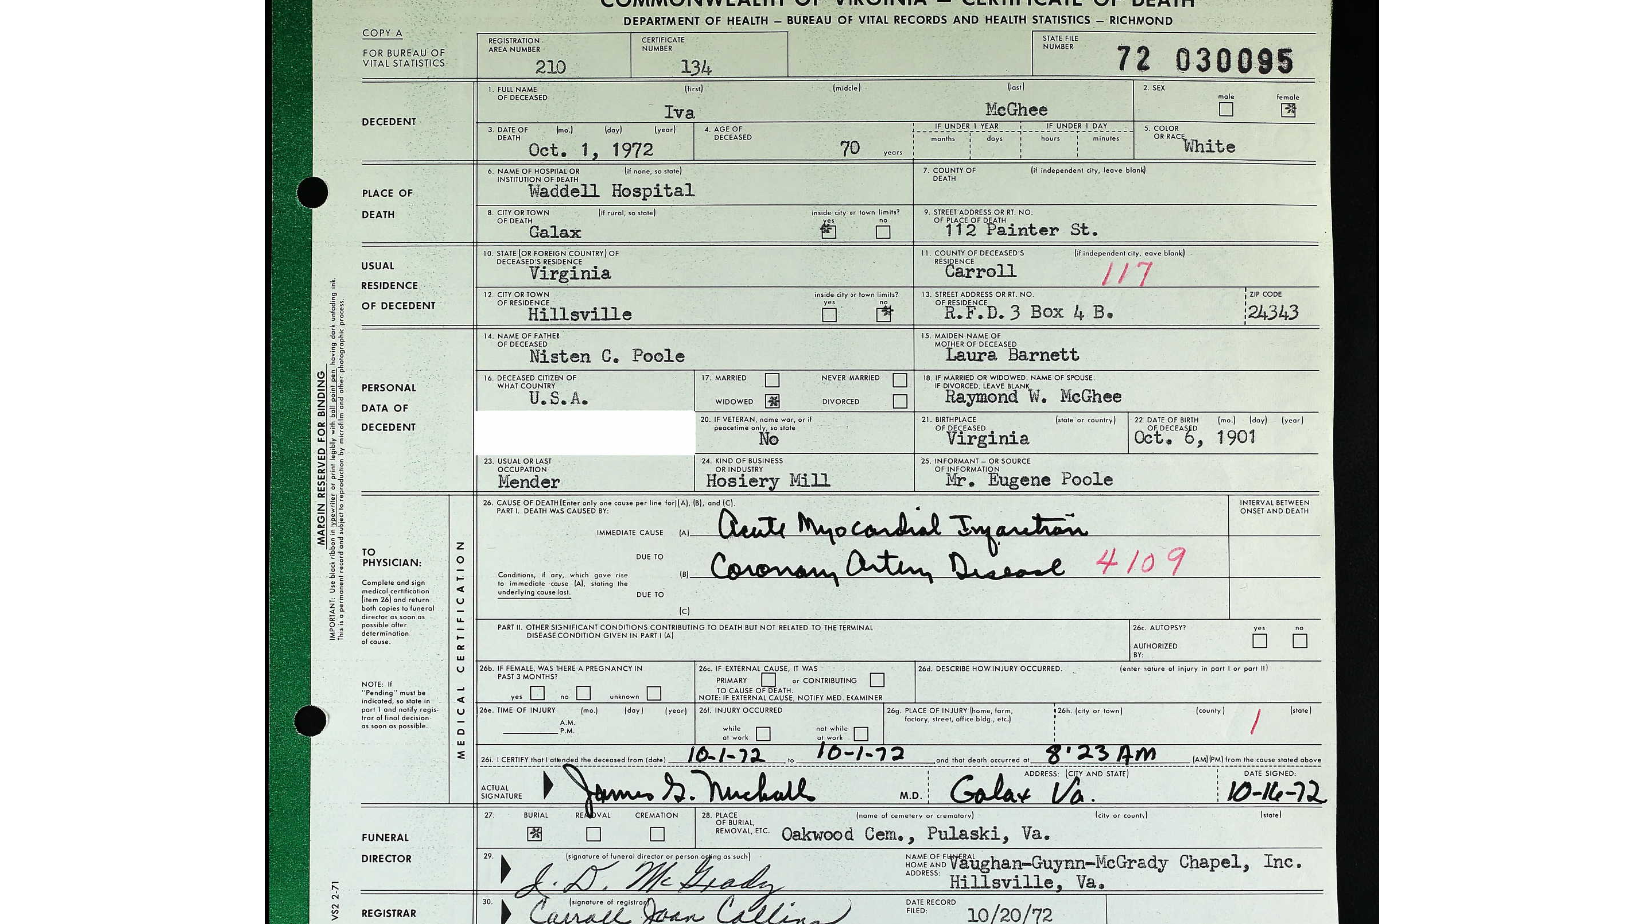 COMMONWEALTH OF VIRGINIA — CERTIFICATE OF DEATH
DEPARTMENT OF HEALTH — BUREAU OF VITAL RECORDS AND HEALTH STATISTICS — RICHMOND
COPY A
FOR BUREAU OF VITAL STATISTICS
REGISTRATION AREA NUMBER 210
CERTIFICATE NUMBER 134
STATE FILE NUMBER 72 030095
DECEDENT
1. FULL NAME OF DECEASED (first) (middle) (last)
Iva McGhee
2. SEX male female
3. DATE OF DEATH (mo.) (day) (year)
Oct. 1, 1972
4. AGE OF DECEASED 70 years
IF UNDER 1 YEAR months days
IF UNDER 1 DAY hours minutes
5. COLOR OR RACE White
PLACE OF DEATH
6. NAME OF HOSPITAL OR INSTITUTION OF DEATH (if none, so state)
Waddell Hospital
7. COUNTY OF DEATH (if independent city, leave blank)
8. CITY OR TOWN OF DEATH (if rural, so state)
Galax
inside city or town limits? yes no
9. STREET ADDRESS OR RT. NO. OF PLACE OF DEATH
112 Painter St.
USUAL RESIDENCE OF DECEDENT
10. STATE (OR FOREIGN COUNTRY) OF DECEASED'S RESIDENCE
Virginia
11. COUNTY OF DECEASED'S RESIDENCE (if independent city, leave blank)
Carroll 117
12. CITY OR TOWN OF RESIDENCE
Hillsville
inside city or town limits? yes no
13. STREET ADDRESS OR RT. NO. OF RESIDENCE
R.F.D.3 Box 4 B.
ZIP CODE 24343
PERSONAL DATA OF DECEDENT
14. NAME OF FATHER OF DECEASED
Nisten C. Poole
15. MAIDEN NAME OF MOTHER OF DECEASED
Laura Barnett
16. DECEASED CITIZEN OF WHAT COUNTRY
U.S.A.
17. MARRIED NEVER MARRIED
WIDOWED DIVORCED
18. IF MARRIED OR WIDOWED, NAME OF SPOUSE. IF DIVORCED, LEAVE BLANK
Raymond W. McGhee
20. IF VETERAN, name war, or if peacetime only, so state
No
21. BIRTHPLACE OF DECEASED (state or country)
Virginia
22 DATE OF BIRTH OF DECEASED (mo.) (day) (year)
Oct. 6, 1901
23. USUAL OR LAST OCCUPATION
Mender
24. KIND OF BUSINESS OR INDUSTRY
Hosiery Mill
25. INFORMANT — OR SOURCE OF INFORMATION
Mr. Eugene Poole
MARGIN RESERVED FOR BINDING
IMPORTANT: Use black ribbon in typewriter or print legibly with ball point pen having dark unfading ink.
This is a permanent record and subject to reproduction by microfilm and other photographic process.
VS2 2-71
MEDICAL CERTIFICATION
TO PHYSICIAN:
Complete and sign medical certification (item 26) and return both copies to funeral director as soon as possible after determination of cause.
NOTE: If "Pending" must be indicated, so state in part 1 and notify registrar of final decision as soon as possible.
26. CAUSE OF DEATH (Enter only one cause per line for (A), (B), and (C).
PART I. DEATH WAS CAUSED BY:
INTERVAL BETWEEN ONSET AND DEATH
IMMEDIATE CAUSE (A) Acute Myocardial Infarction
DUE TO
(B) Coronary Artery Disease 4109
Conditions, if any, which gave rise to immediate cause (A), stating the underlying cause last.
DUE TO
(C)
PART II. OTHER SIGNIFICANT CONDITIONS CONTRIBUTING TO DEATH BUT NOT RELATED TO THE TERMINAL DISEASE CONDITION GIVEN IN PART I (A)
26a. AUTOPSY? yes no
AUTHORIZED BY:
26b. IF FEMALE, WAS THERE A PREGNANCY IN PAST 3 MONTHS?
yes no unknown
26c. IF EXTERNAL CAUSE, IT WAS
PRIMARY or CONTRIBUTING
TO CAUSE OF DEATH.
NOTE: IF EXTERNAL CAUSE, NOTIFY MED. EXAMINER
26d. DESCRIBE HOW INJURY OCCURRED. (enter nature of injury in part I or part II)
26e. TIME OF INJURY (mo.) (day) (year)
A.M.
P.M.
26f. INJURY OCCURRED
while at work not while at work
26g. PLACE OF INJURY (home, farm, factory, street, office bldg., etc.)
26h. (city or town) (county) (state)
1
26i. I CERTIFY that I attended the deceased from (date) 10-1-72 to 10-1-72 and that death occurred at 8:23 AM (AM)(PM) from the cause stated above
ACTUAL SIGNATURE James G. Nuckolls M.D.
ADDRESS: (CITY AND STATE) Galax Va.
DATE SIGNED: 10-16-72
FUNERAL DIRECTOR
27. BURIAL REMOVAL CREMATION
28. PLACE OF BURIAL, REMOVAL, ETC. (name of cemetery or crematory) (city or county) (state)
Oakwood Cem., Pulaski, Va.
29. (signature of funeral director or person acting as such)
J. D. McGrady
NAME OF FUNERAL HOME AND ADDRESS:
Vaughan-Guynn-McGrady Chapel, Inc.
Hillsville, Va.
REGISTRAR
30. (signature of registrar)
Carroll Joan Collins
DATE RECORD FILED: 10/20/72